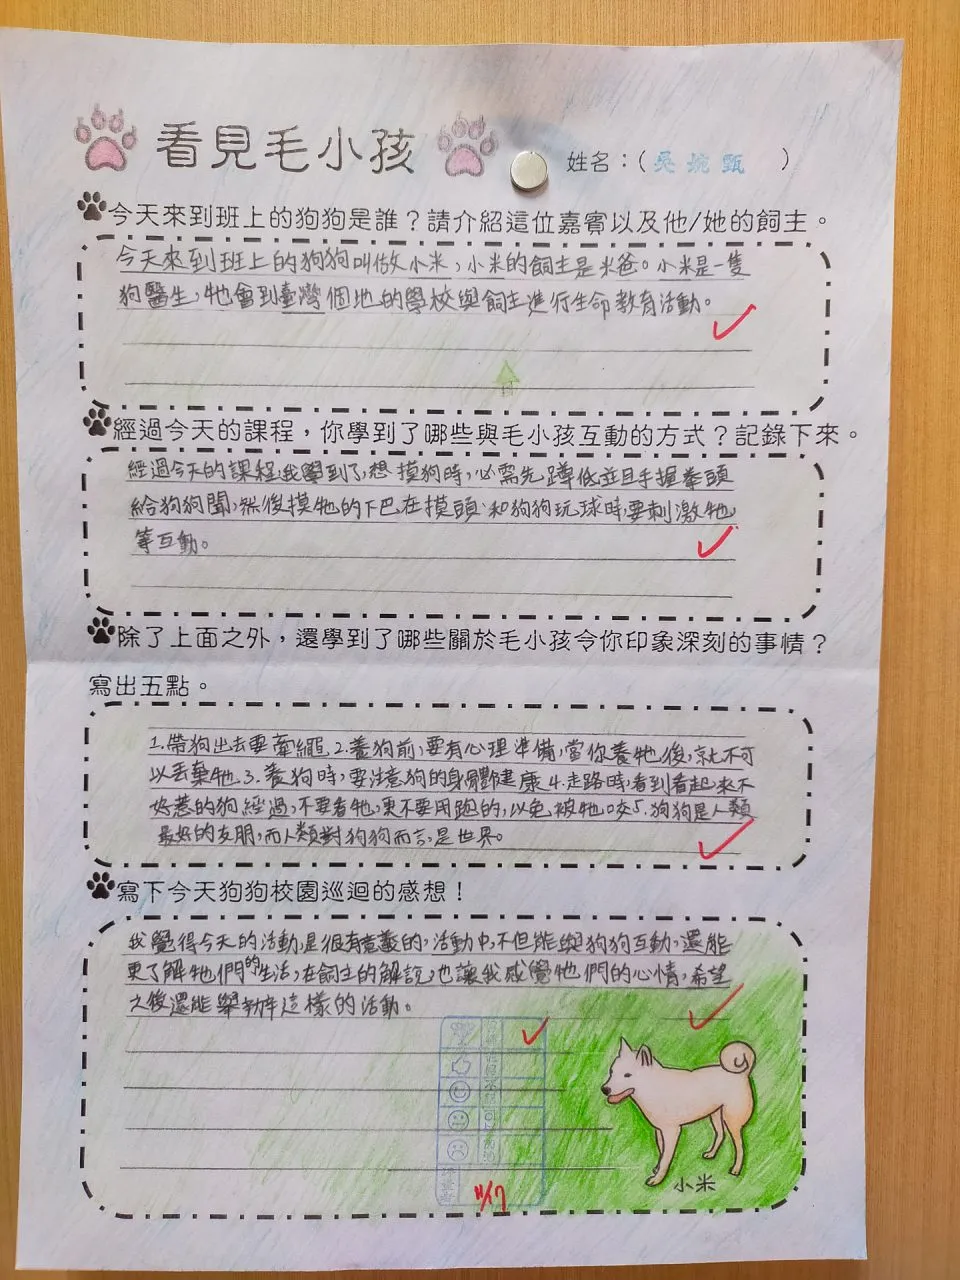 看見毛小孩
姓名：（吳琬甄）
今天來到班上的狗狗是誰？請介紹這位嘉賓以及他/她的飼主。
今天來到班上的狗狗叫做小米，小米的飼主是米爸。小米是一隻
狗醫生，牠會到臺灣個地的學校與飼主進行生命教育活動。
經過今天的課程，你學到了哪些與毛小孩互動的方式？記錄下來。
經過今天的課程我學到了，想摸狗時，必需先蹲低並且手握拳頭
給狗狗聞，然後摸牠的下巴在摸頭、和狗狗玩球時，要刺激牠，
等互動。
除了上面之外，還學到了哪些關於毛小孩令你印象深刻的事情？
寫出五點。
1.帶狗出去要牽繩 2.養狗前，要有心理準備，當你養牠後，就不可
以丟棄牠 3.養狗時，要注意狗的身體健康 4.走路時，看到看起來不
好惹的狗經過，不要看牠，更不要用跑的，以免被牠咬 5.狗狗是人類
最好的友朋，而人類對狗狗而言，是世界。
寫下今天狗狗校園巡迴的感想！
我覺得今天的活動，是很有意義的，活動中，不但能與狗狗互動，還能
更了解牠們的生活，在飼主的解說，也讓我感覺牠們的心情，希望
之後還能舉辦這樣的活動。
小米
11/17